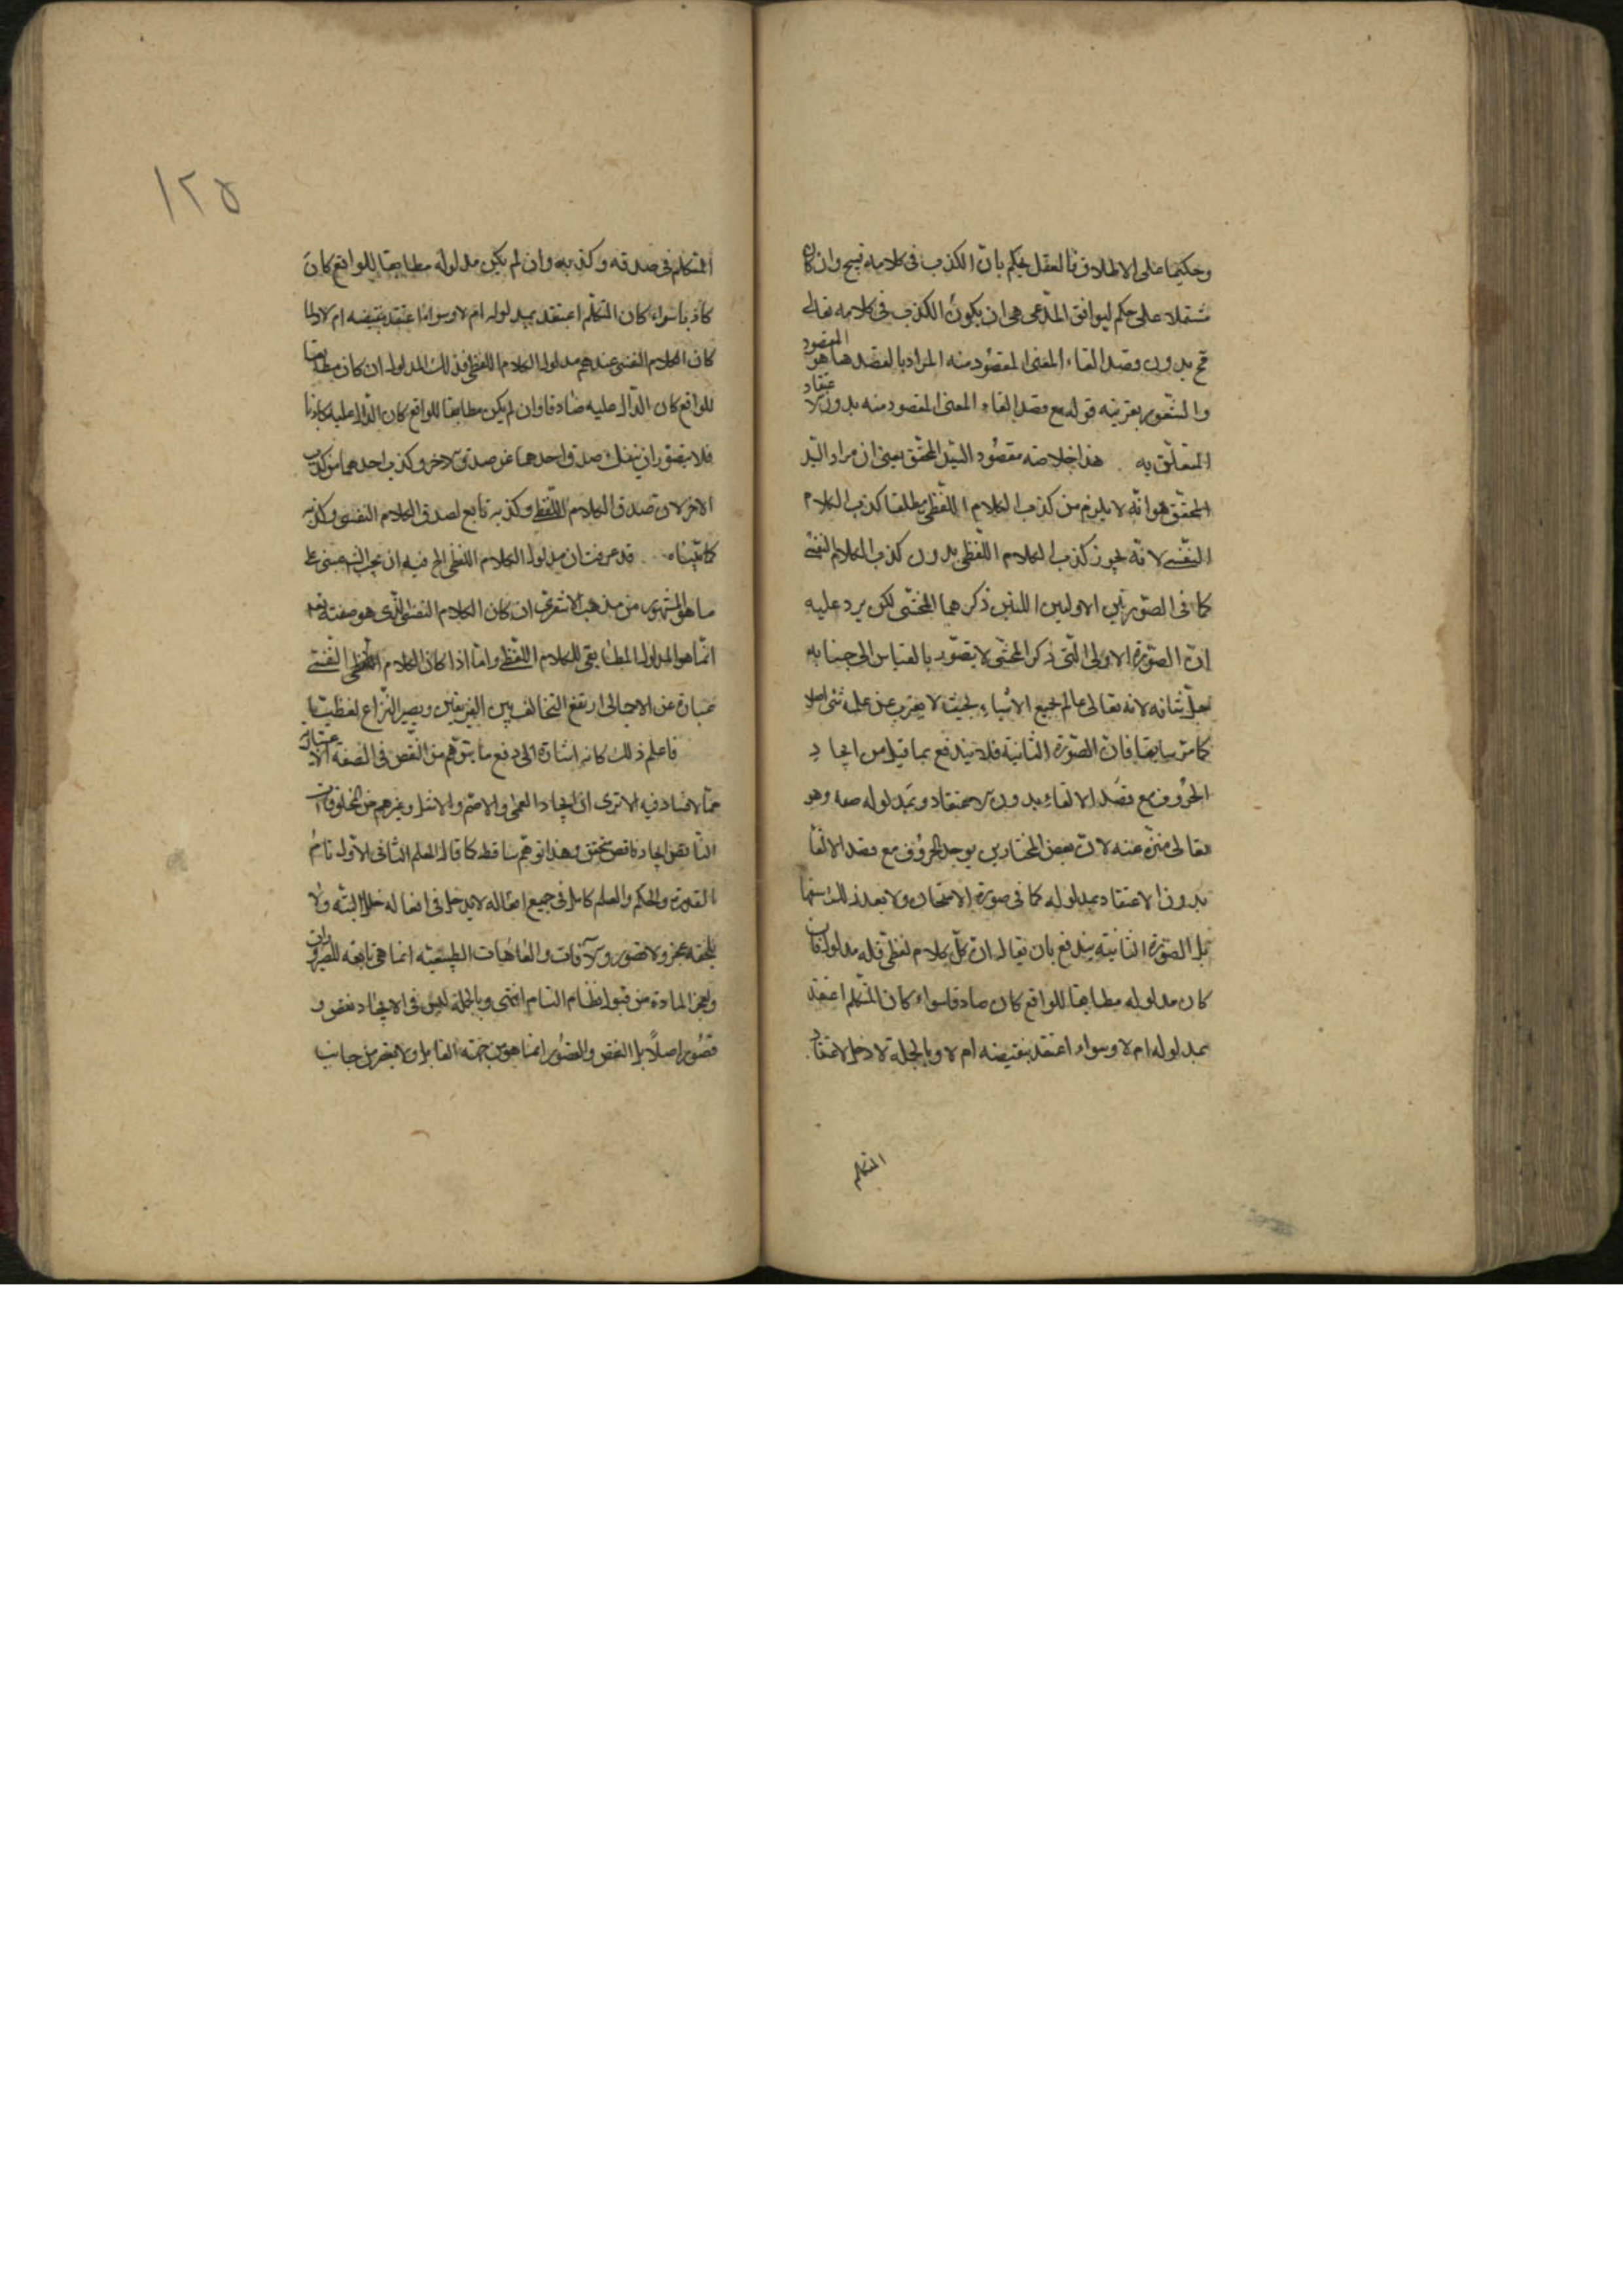 وحكيما على الاطلاق فالعقل يحكم بان الكذب فى كلامه قبيح وان كان
مشتملا على حكم ليوافق المدعى هى ان يكون الكذب فى كلامه تعالى
قبح بدون وقصد القاء المعنى المقصود منه المراد بالقصد هاهو المقصود
والشعور بقرينة قوله مع قصد القاء المعنى المقصود منه بدون الاعتقاد
المتعلق به هذا خلاصة مقصود السيد المحقق يعنى ان مراد السيد
المحقق هو انه لا يلزم من كذب الكلام اللفظى مطلقا كذب الكلام
النفسى لانه يجوز كذب الكلام اللفظى بدون كذب الكلام النفسى
كما فى الصورتين الاوليين اللتين ذكرهما المحشى لكن يرد عليه
ان الصورة الاولى التى ذكر المحشى لا يتصور بالقياس الى جنابه
جل شانه لانه تعالى عالم بجميع الاشياء بحيث لا يعزب عن علمه شئ اصلا
كما مر سابقا فان الصورة الثانية فلا يندفع بما قيل من ايجاد
الحروف مع قصد الالقاء بدون الاعتقاد وبمدلوله صفة وهو
تعالى منزه عنه لان بعض المختارين يوجد الحروف مع قصد الالقا
بدون الاعتقاد بمدلوله كما فى صورة الامتحان ولا يعد ذلك سفها
بل الصورة الثانية يندفع بان يقال ان كل كلام لفظى فله مدلول فان
كان مدلوله مطابقا للواقع كان صادقا سواء كان المتكلم اعتقد
بمدلوله ام لا وسواء اعتقد بنقيضه ام لا وبالجملة لا دخل لاعتقاد
المتكلم
١٢٥
المتكلم فى صدقه وكذبه وان لم يكن مدلوله مطابقا للواقع كان
كاذبا سواء كان المتكلم اعتقد بمدلوله ام لا وسواء اعتقد بنقيضه ام لا ولما
كان الكلام النفسى عندهم مدلول الكلام اللفظى فذلك المدلول ان كان مطابقا
للواقع كان الدال عليه صادقا وان لم يكن مطابقا للواقع كان الدال عليه كاذبا
فلا يتصور ان ينفك صدق احدهما عن صدق الاخر وكذب احدهما من كذب
الاخر لان صدق الكلام اللفظى وكذبه تابع لصدق الكلام النفسى وكذبه
كما بيناه قد عرفت ان مدلول الكلام اللفظى الخ فيه ان مبنى على
ما هو المشهور من مذهب الاشعرى ان كان الكلام النفسى الذى هو صفته تعالى
انما هو المدلول المطابقى للكلام اللفظى واما اذا كان الكلام النفسى
عبارة عن الاجمالى ارتفع التخالف بين الفريقين ويصير النزاع لفظيا
فاعلم ذلك كانه اشارة الى دفع ما يتوهم من النقص فى الصفة الاعتبارية
مما لا فساد فيه الا ترى ان ايجاد العمى والاصم والاشل وغيرهم من المخلوقات
الناقص ايجاد ناقص تحقق وهذا توهم ساقط كما قال المعلم الثانى الاول تام
القدرة والحكم والعلم كامل فى جميع افعاله لا يدخل فى افعاله خلل البتة ولا
يلحقه عجز ولا قصور والآفات والعاهات الطبيعية انما هى تابعة للضرورات
ولعجز المادة من قبول النظام التام انتهى وبالجملة ليس فى الايجاد نقص و
قصور اصلا بل النقص والقصور انما هو من جهة القابل ولا يتغير من جانب